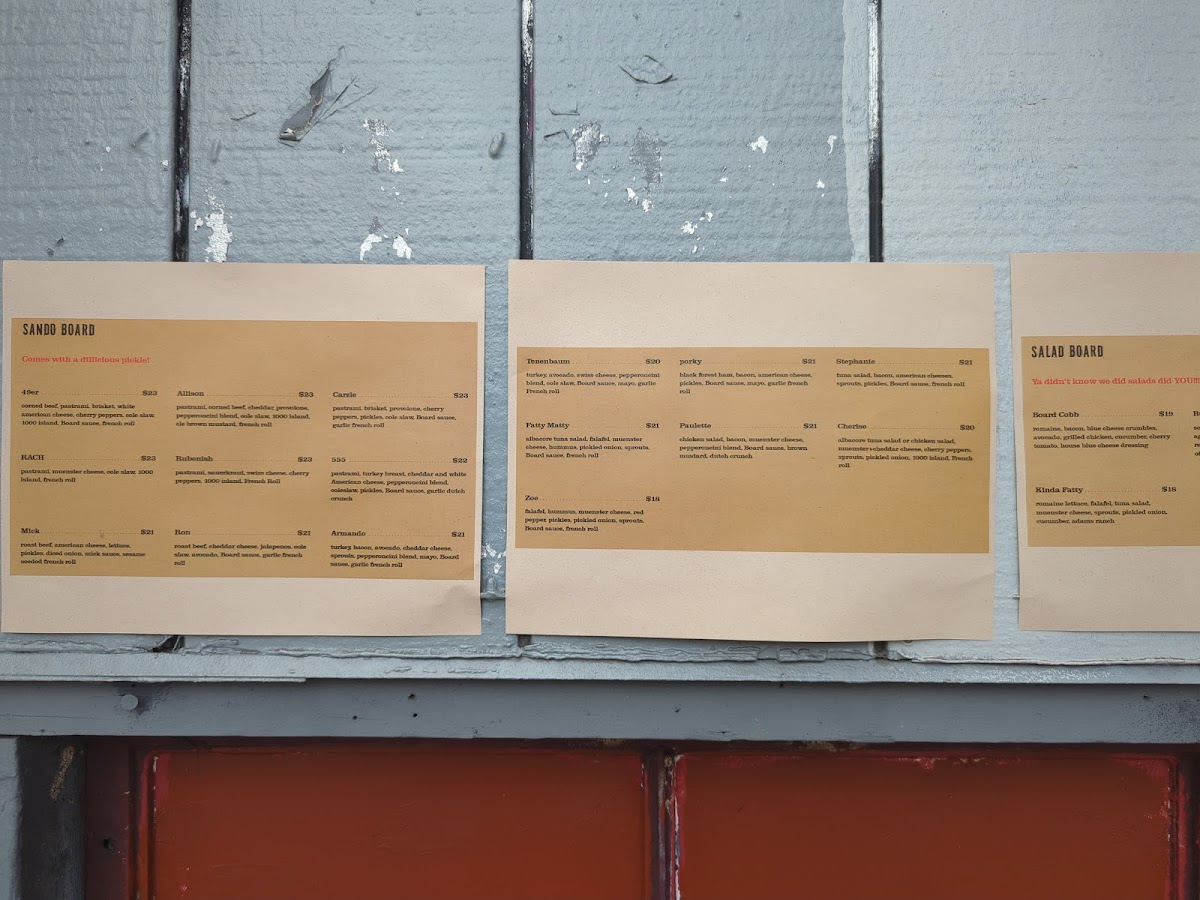 SANDO BOARD
Comes with a dillicious pickle!
49er $23
corned beef, pastrami, brisket, white
american cheese, cherry peppers, cole slaw,
1000 island, Board sauce, french roll
Allison $23
pastrami, corned beef, cheddar, provolone,
pepperoncini blend, cole slaw, 1000 island,
cle brown mustard, french roll
Carzle $23
pastrami, brisket, provolone, cherry
peppers, pickles, cole slaw, Board sauce,
garlic french roll
RACH $23
pastrami, muenster cheese, cole slaw, 1000
island, french roll
Rubenish $23
pastrami, sauerkraut, swiss cheese, cherry
peppers, 1000 island, French Roll
555 $22
pastrami, turkey breast, cheddar and white
American cheese, pepperoncini blend,
coleslaw, pickles, Board sauce, garlic dutch
crunch
Mick $21
roast beef, american cheese, lettuce,
pickles, diced onion, mick sauce, sesame
seeded french roll
Ron $21
roast beef, cheddar cheese, jalapenos, cole
slaw, avocado, Board sauce, garlic french
roll
Armando $21
turkey, bacon, avocado, cheddar cheese,
sprouts, pepperoncini blend, mayo, Board
sauce, garlic french roll
Tenenbaum $20
turkey, avocado, swiss cheese, pepperoncini
blend, cole slaw, Board sauce, mayo, garlic
French roll
porky $21
black forest ham, bacon, american cheese,
pickles, Board sauce, mayo, garlic french
roll
Stephanie $21
tuna salad, bacon, american cheeses,
sprouts, pickles, Board sauce, french roll
Fatty Matty $21
albacore tuna salad, falafel, muenster
cheese, hummus, pickled onion, sprouts,
Board sauce, french roll
Paulette $21
chicken salad, bacon, muenster cheese,
pepperoncini blend, Board sauce, brown
mustard, dutch crunch
Cherise $20
albacore tuna salad or chicken salad,
muenster+cheddar cheese, cherry peppers,
sprouts, pickled onion, 1000 island, French
roll
Zoe $18
falafel, hummus, muenster cheese, red
pepper, pickles, pickled onion, sprouts,
Board sauce, french roll
SALAD BOARD
Ya didn't know we did salads did YOU!!!
Board Cobb $19
romaine, bacon, blue cheese crumbles,
avocado, grilled chicken, cucumber, cherry
tomato, house blue cheese dressing
Kinda Fatty $18
romaine lettuce, falafel, tuna salad,
muenster cheese, sprouts, pickled onion,
cucumber, adams ranch